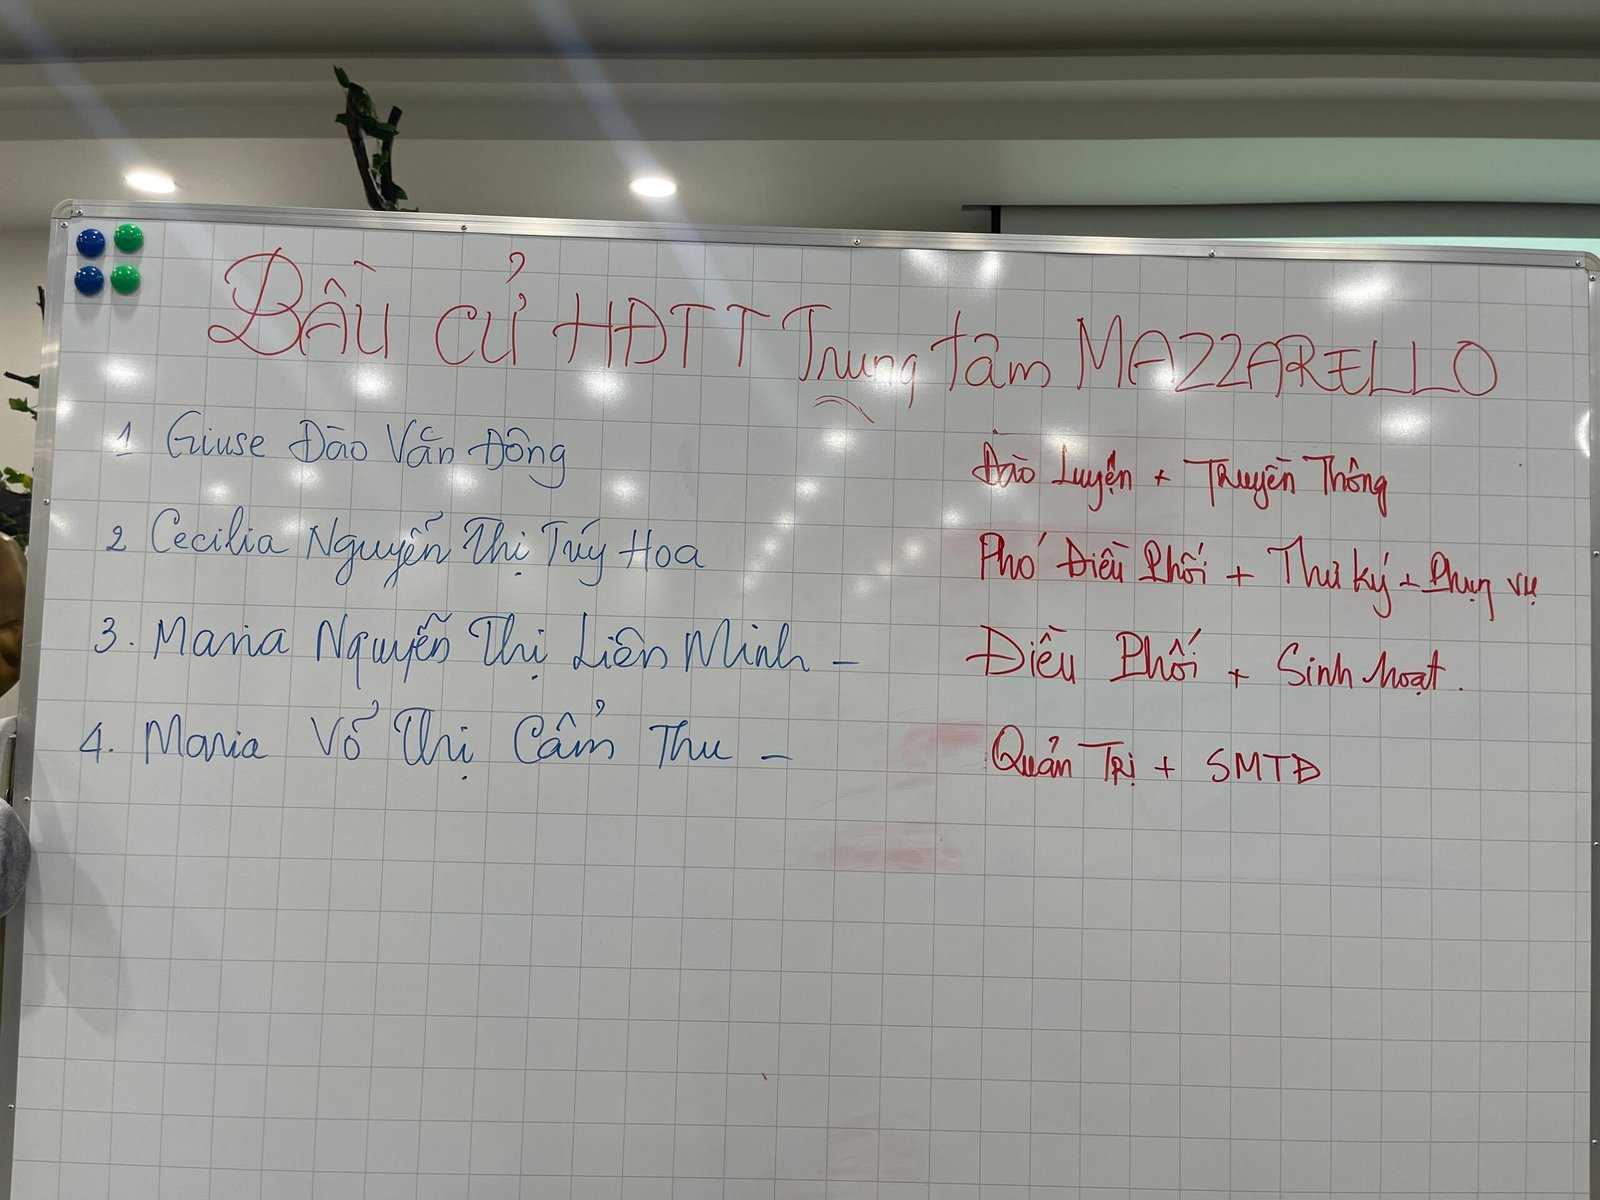 BẦU CỬ HĐTT Trung tâm MAZZARELLO
1 Giuse Đào Văn Đông Đào Luyện + Truyền Thông
2 Cecilia Nguyễn Thị Túy Hoa Phó Điều Phối + Thư ký + Phụng vụ
3. Maria Nguyễn Thị Liên Minh - Điều Phối + Sinh hoạt.
4. Maria Võ Thị Cẩm Thu - Quản Trị + SMTĐ